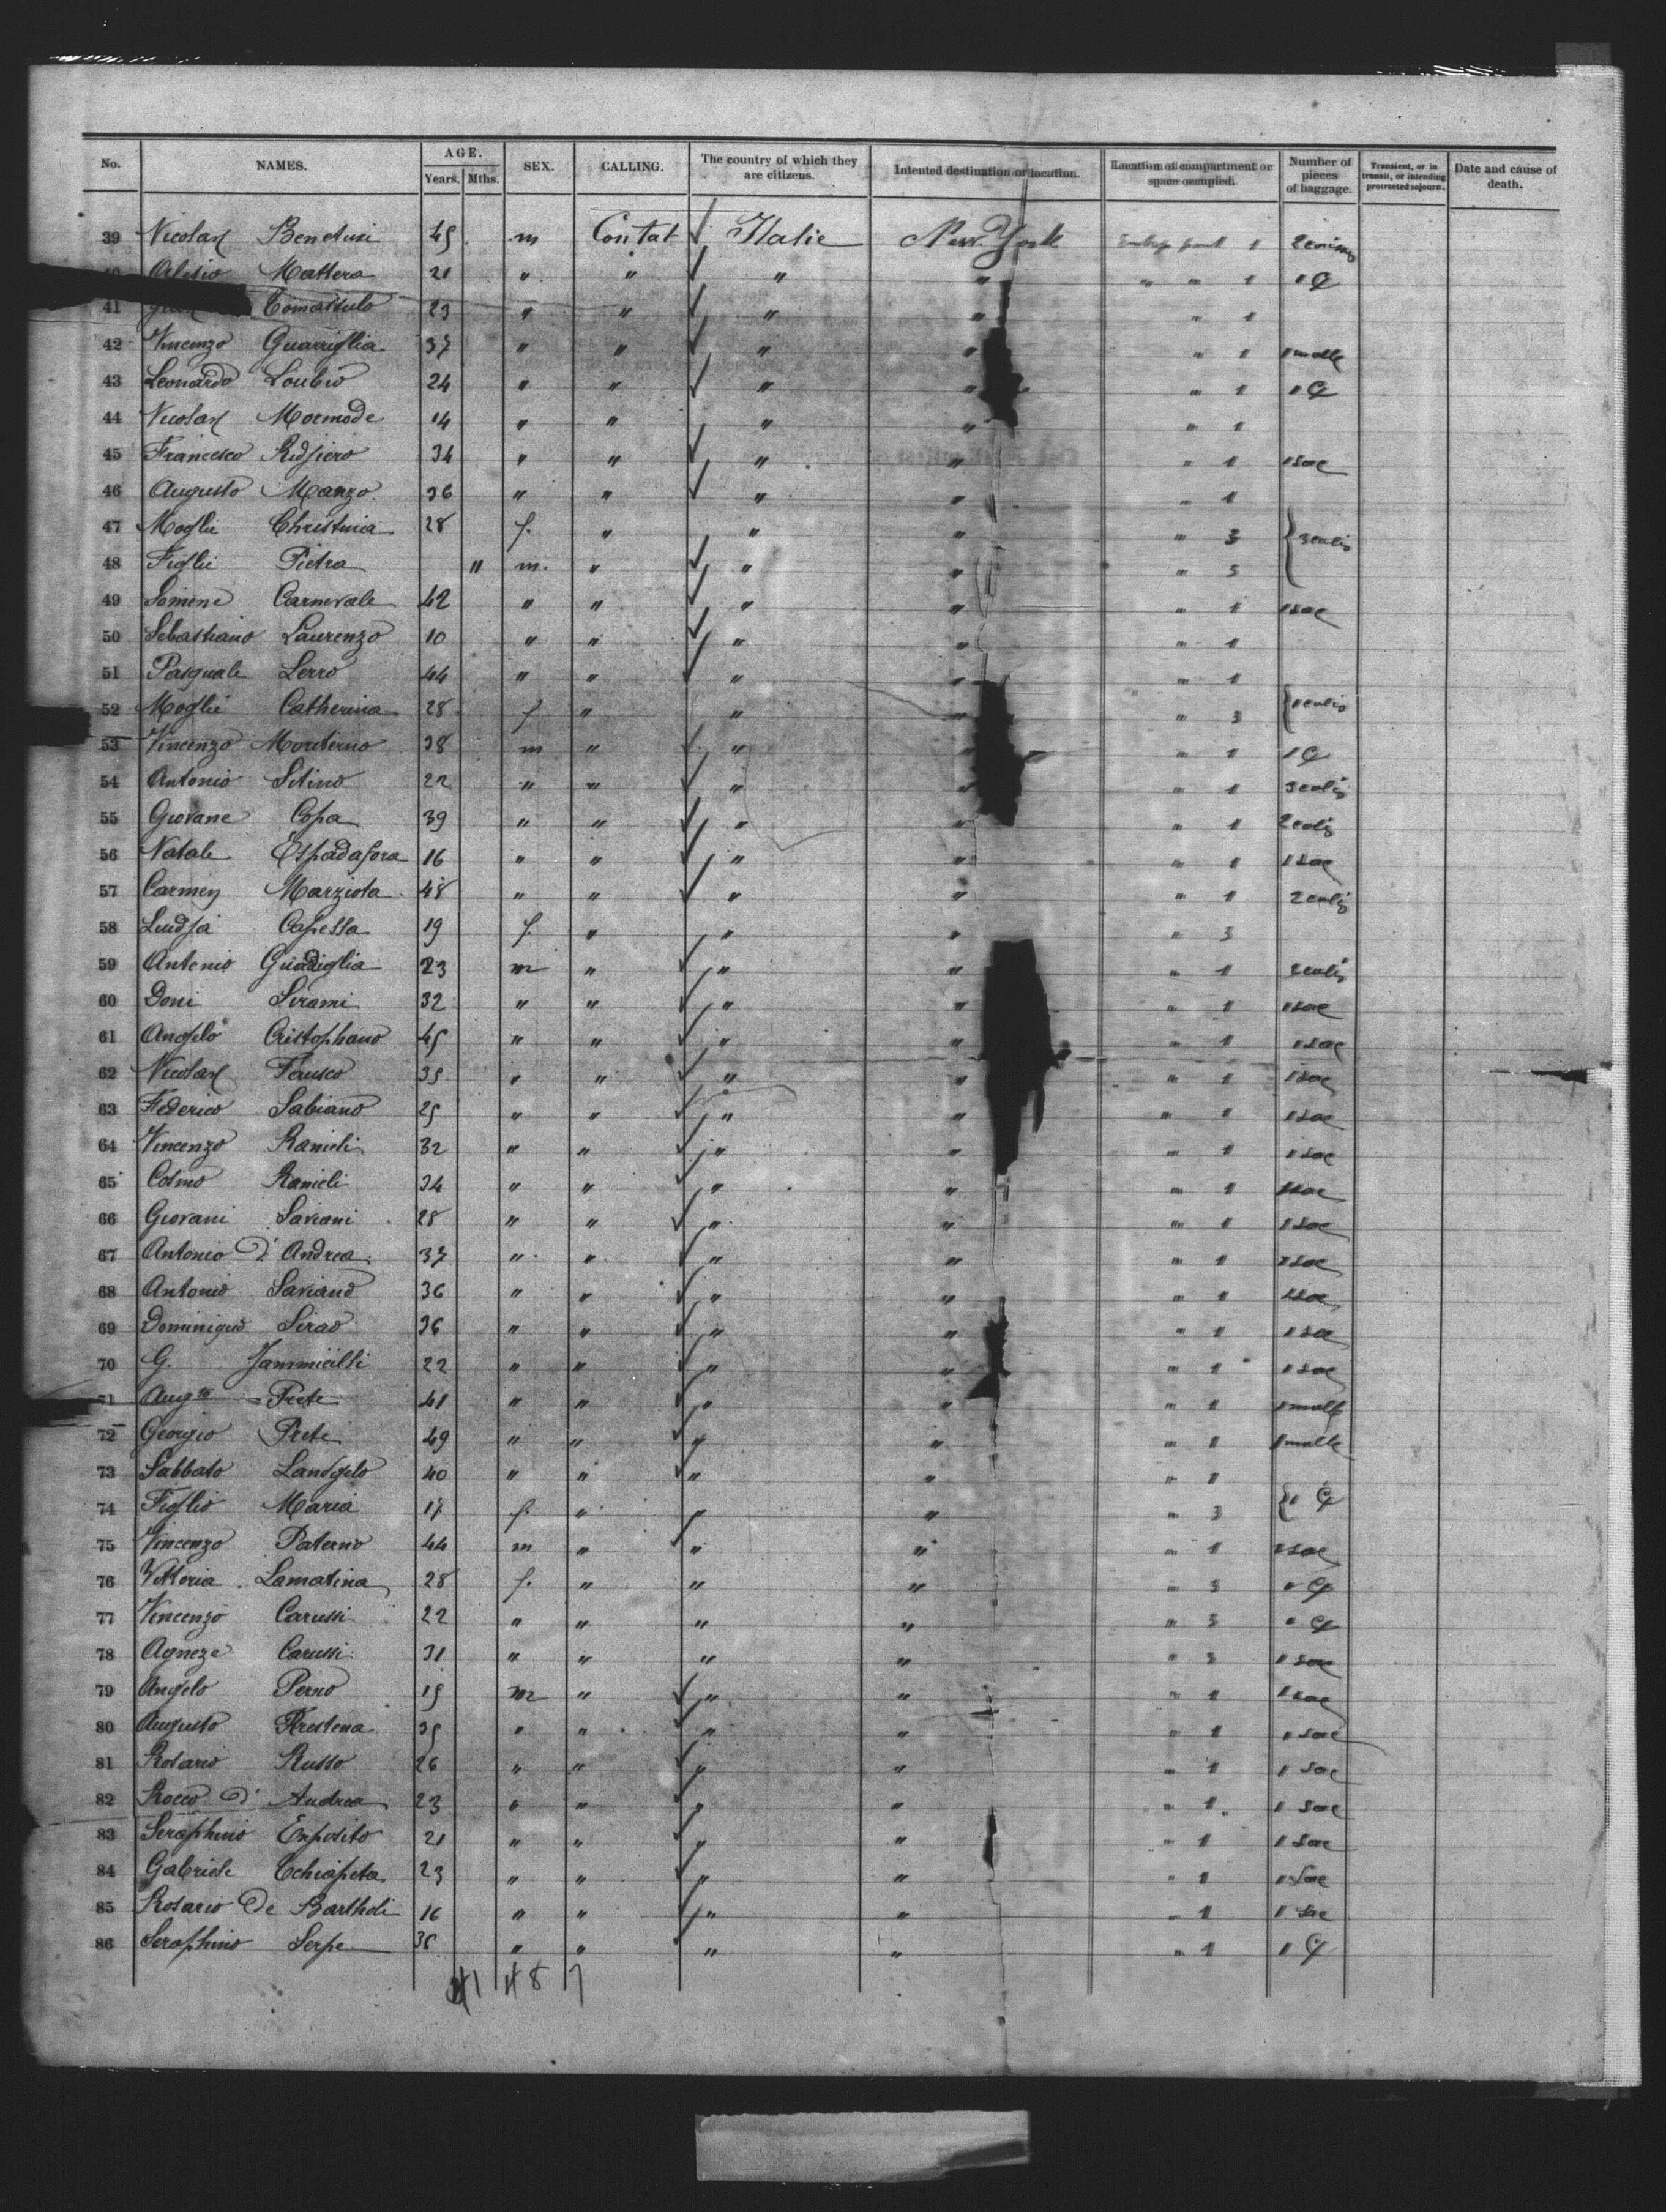 No. NAMES. AGE. Years. Mths. SEX. CALLING. The country of which they are citizens. Intented destination or location. Location of compartment or space occupied. Number of pieces of baggage. Transient, or in transit, or intending protracted sojourn. Date and cause of death.
39 Nicolas 45 m Italie New-York 1
Mattera 21 " " " " " " 1 1
41 Tomassulo 29 " " " " " 1
42 Vincenzo Guarriglia 37 " " " " " 1 1 malle
43 Leonardo Loubio 24 " " " " " 1 1
44 Nicolas Mormode 14 " " " " " 1
45 Francesco 34 " " " " " 1 1 sac
46 Augusto Manzo 36 " " " " " 1
47 Moglie Christinia 28 f. " " " " 3 3 colis
48 Figlie Pietra " m. " " " " 3
49 Simene Carnevale 42 " " " " " 1 1 sac
50 Sebastiano Laurenzo 10 " " " " " 1
51 Pasquale Serro 44 " " " " " 1
52 Moglie Catherina 28 f " " " " 3 1 colis
53 Vincenzo 38 m " " " " 1 1
54 Antonio Setino 22 " " " " " 1 3 colis
55 Giovane Copa 39 " " " " " 1 2 colis
56 Natale Espadafora 16 " " " " " 1 1 sac
57 Carmin Marziota 48 " " " " " 1 2 colis
58 Capessa 19 f. " " " " 3
59 Antonio 23 m " " " " 1 2 colis
60 Doni Serami 32 " " " " " 1 1 sac
61 Angelo Cristophano 45 " " " " " 1 1 sac
62 Nicolas Fausco 35 " " " " " 1 1 sac
63 Federico Sabiano 25 " " " " " 1 1 sac
64 Vincenzo Ranieli 32 " " " " " 1 1 sac
65 Cosmo Ranieli 34 " " " " " 1 1 sac
66 Giovani Saviani 28 " " " " " 1 1 sac
67 Antonio d'Andrea 37 " " " " " 1 1 sac
68 Antonio Saviano 36 " " " " " 1 1 sac
69 Dominiquo Sirao 36 " " " " " 1 1 sac
70 G. Jammicelli 22 " " " " " 1 1 sac
71 Augto Prete 41 " " " " " 1 1 malle
72 Georgio Prete 49 " " " " " 1 1 malle
73 Sabbato Landgelo 40 " " " " " 1
74 Figlio Maria 17 f. " " " " 3 1
75 Vincenzo Paterno 44 m " " " " 1 1 sac
76 Vittoria Lamatina 28 f. " " " " 3 1
77 Vincenzo Carussi 22 " " " " " 3
78 Agneze Carussi 31 " " " " " 3 1 sac
79 Angelo Perno 15 m " " " " 1 1 sac
80 Augusto Prestena 35 " " " " " 1 1 sac
81 Rosario Russo 26 " " " " " 1 1 sac
82 Rocco d'Andrea 23 " " " " " 1 1 sac
83 Seraphino Exposito 21 " " " " " 1 1 sac
84 Gabriele Echiapeta 23 " " " " " 1 1 sac
85 Rosario De Bartholi 16 " " " " " 1 1 sac
86 Seraphino Serpe 36 " " " " " 1 1